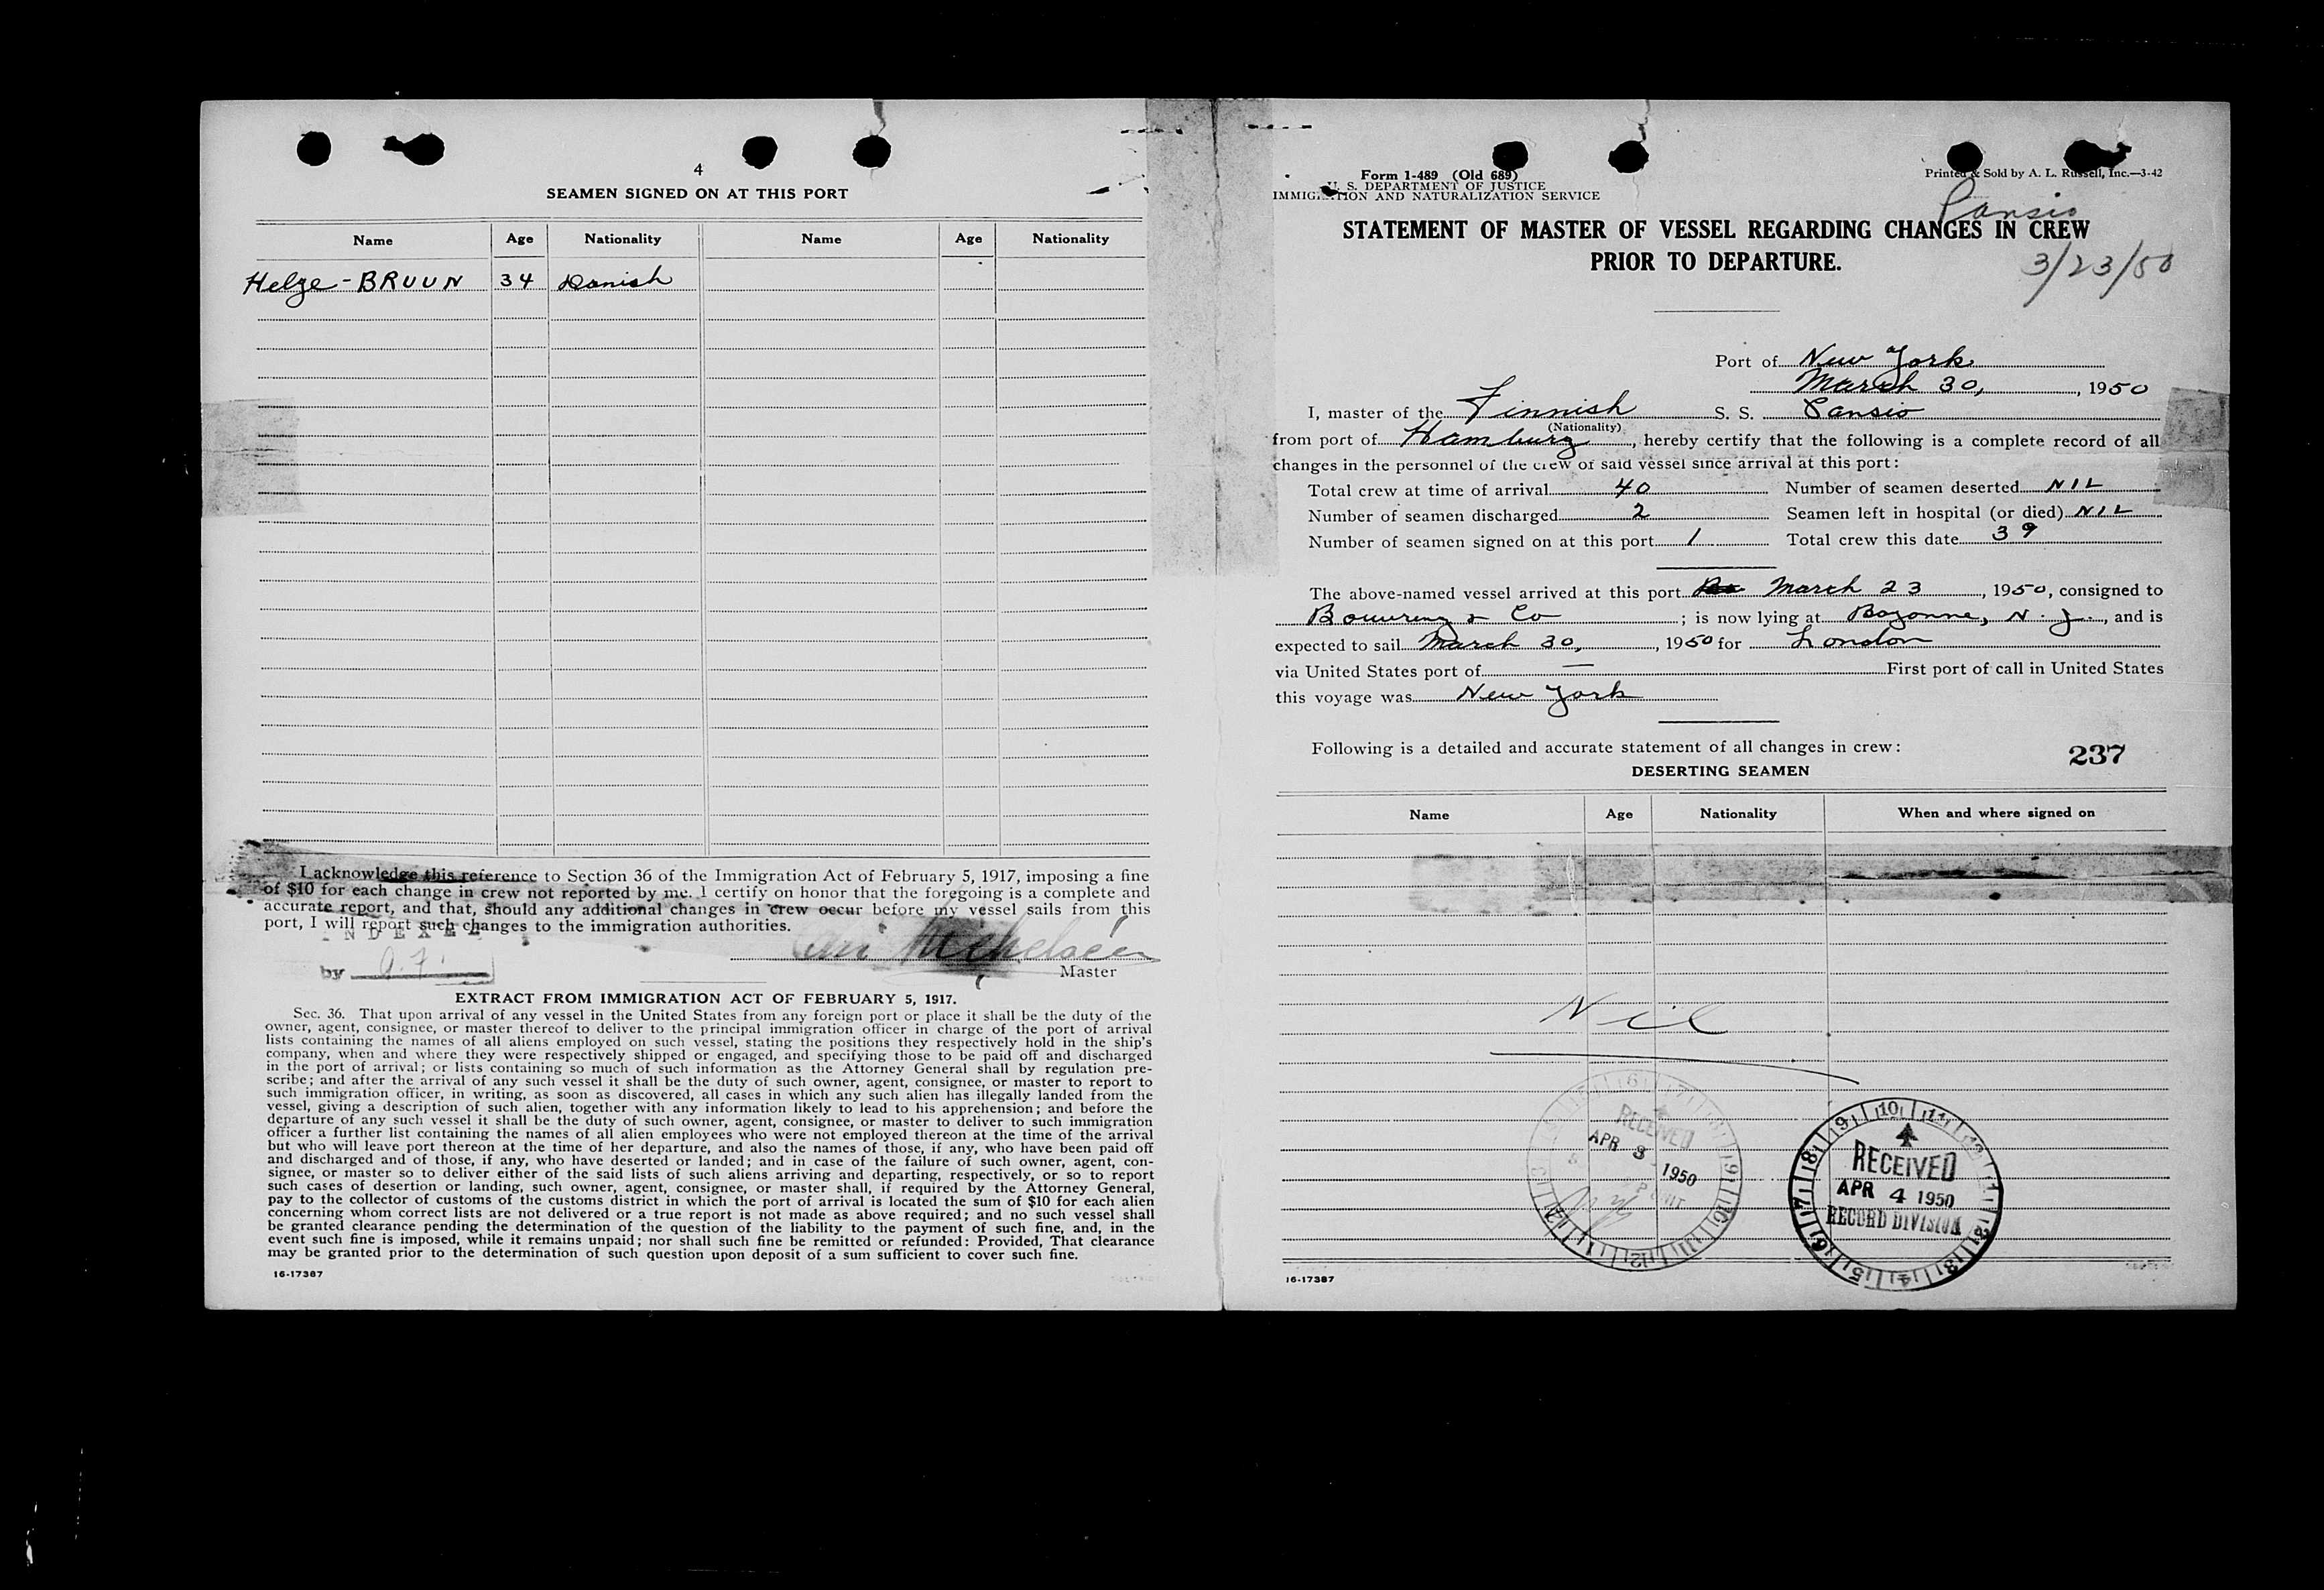 4
SEAMEN SIGNED ON AT THIS PORT
Name Age Nationality Name Age Nationality
Helge - BRUUN 34 Danish
I acknowledge this reference to Section 36 of the Immigration Act of February 5, 1917, imposing a fine
of $10 for each change in crew not reported by me. I certify on honor that the foregoing is a complete and
accurate report, and that, should any additional changes in crew occur before my vessel sails from this
port, I will report such changes to the immigration authorities.
by
Master
EXTRACT FROM IMMIGRATION ACT OF FEBRUARY 5, 1917.
Sec. 36. That upon arrival of any vessel in the United States from any foreign port or place it shall be the duty of the
owner, agent, consignee, or master thereof to deliver to the principal immigration officer in charge of the port of arrival
lists containing the names of all aliens employed on such vessel, stating the positions they respectively hold in the ship's
company, when and where they were respectively shipped or engaged, and specifying those to be paid off and discharged
in the port of arrival; or lists containing so much of such information as the Attorney General shall by regulation pre-
scribe; and after the arrival of any such vessel it shall be the duty of such owner, agent, consignee, or master to report to
such immigration officer, in writing, as soon as discovered, all cases in which any such alien has illegally landed from the
vessel, giving a description of such alien, together with any information likely to lead to his apprehension; and before the
departure of any such vessel it shall be the duty of such owner, agent, consignee, or master to deliver to such immigration
officer a further list containing the names of all alien employees who were not employed thereon at the time of the arrival
but who will leave port thereon at the time of her departure, and also the names of those, if any, who have been paid off
and discharged and of those, if any, who have deserted or landed; and in case of the failure of such owner, agent, con-
signee, or master so to deliver either of the said lists of such aliens arriving and departing, respectively, or so to report
such cases of desertion or landing, such owner, agent, consignee, or master shall, if required by the Attorney General,
pay to the collector of customs of the customs district in which the port of arrival is located the sum of $10 for each alien
concerning whom correct lists are not delivered or a true report is not made as above required; and no such vessel shall
be granted clearance pending the determination of the question of the liability to the payment of such fine, and, in the
event such fine is imposed, while it remains unpaid; nor shall such fine be remitted or refunded: Provided, That clearance
may be granted prior to the determination of such question upon deposit of a sum sufficient to cover such fine.
16-17387
Form 1-489 (Old 689)
U. S. DEPARTMENT OF JUSTICE
IMMIGRATION AND NATURALIZATION SERVICE
Printed & Sold by A. L. Russell, Inc.—3-42
Pansio
STATEMENT OF MASTER OF VESSEL REGARDING CHANGES IN CREW
PRIOR TO DEPARTURE.
3/23/50
Port of New York
March 30, , 1950
I, master of the Finnish S. S. Pansio
(Nationality)
from port of Hamburg , hereby certify that the following is a complete record of all
changes in the personnel of the crew of said vessel since arrival at this port:
Total crew at time of arrival 40 Number of seamen deserted NIL
Number of seamen discharged 2 Seamen left in hospital (or died) NIL
Number of seamen signed on at this port 1 Total crew this date 39
The above-named vessel arrived at this port March 23 , 1950, consigned to
Bowring & Co ; is now lying at Bayonne, N. J. , and is
expected to sail March 30, , 1950 for London
via United States port of — First port of call in United States
this voyage was New York
Following is a detailed and accurate statement of all changes in crew:
237
DESERTING SEAMEN
Name Age Nationality When and where signed on
Nil
RECEIVED
APR 3 1950
RECEIVED
APR 4 1950
RECORD DIVISION
16-17387